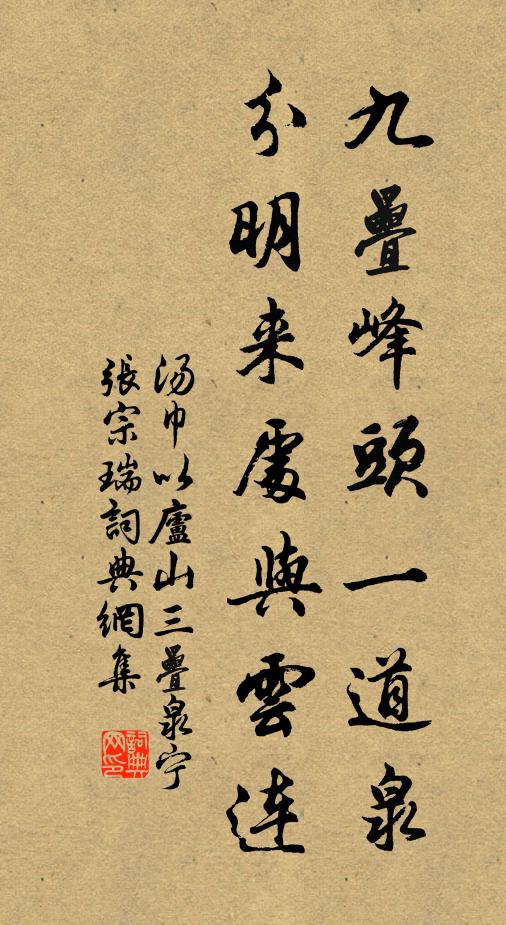 九疊峰頭一道泉
分明来處與雲連
汤巾以廬山三疊泉宁
張宗瑞詞典網集
詞典网印